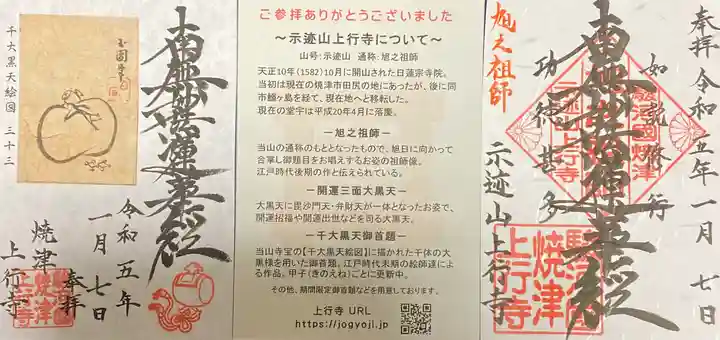 奉拝 令和五年一月七日
如説修行
南無妙法蓮華経
功徳甚多
旭之祖師
示迹山上行寺
駿河國焼津
示迹山上行寺
駿河國
焼津
上行寺
ご参拝ありがとうございました
～示迹山上行寺について～
山号:示迹山 通称:旭之祖師
天正10年(1582)10月に開山された日蓮宗寺院。
当初は現在の焼津市田尻の地にあったが、後に同
市鰯ヶ島を経て、現在地へと移転した。
現在の堂宇は平成20年4月に落慶。
―旭之祖師―
当山の通称のもととなったもので、旭日に向かって
合掌し御題目をお唱えするお姿の祖師像。
江戸時代後期の作と伝えられている。
―開運三面大黒天―
大黒天に毘沙門天・弁財天が一体となったお姿で、
開運招福や開運出世などを司る大黒天。
―千大黒天御首題―
当山寺宝の【千大黒天絵図】に描かれた千体の大
黒様を用いた御首題。江戸時代末期の絵師達によ
る作品。甲子(きのえね)ごとに更新中。
その他、期間限定御首題などを用意しております。
上行寺 URL
https://jogyoji.jp
南無妙法蓮華経
令和五年
一月七日
奉拝
焼津
上行寺
焼津
上行寺
千大黒天絵図 三十三